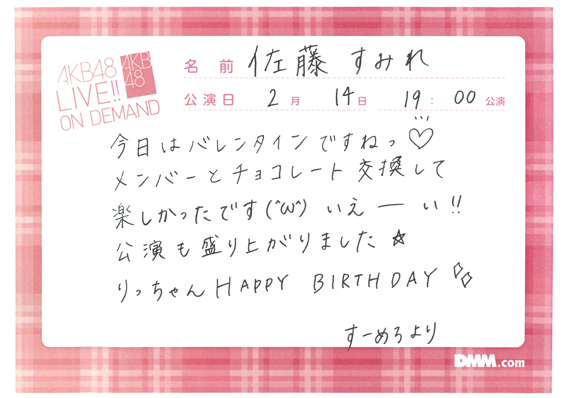 AKB48
LIVE!!
ON DEMAND
AKB
48
名前 佐藤 すみれ
公演日 2月 14日 19:00公演
今日はバレンタインですねっ♡
メンバーとチョコレート交換して
楽しかったです(^ω^) いえーい!!
公演も盛り上がりました☆
りっちゃんHAPPY BIRTHDAY
すーめろより
DMM.com